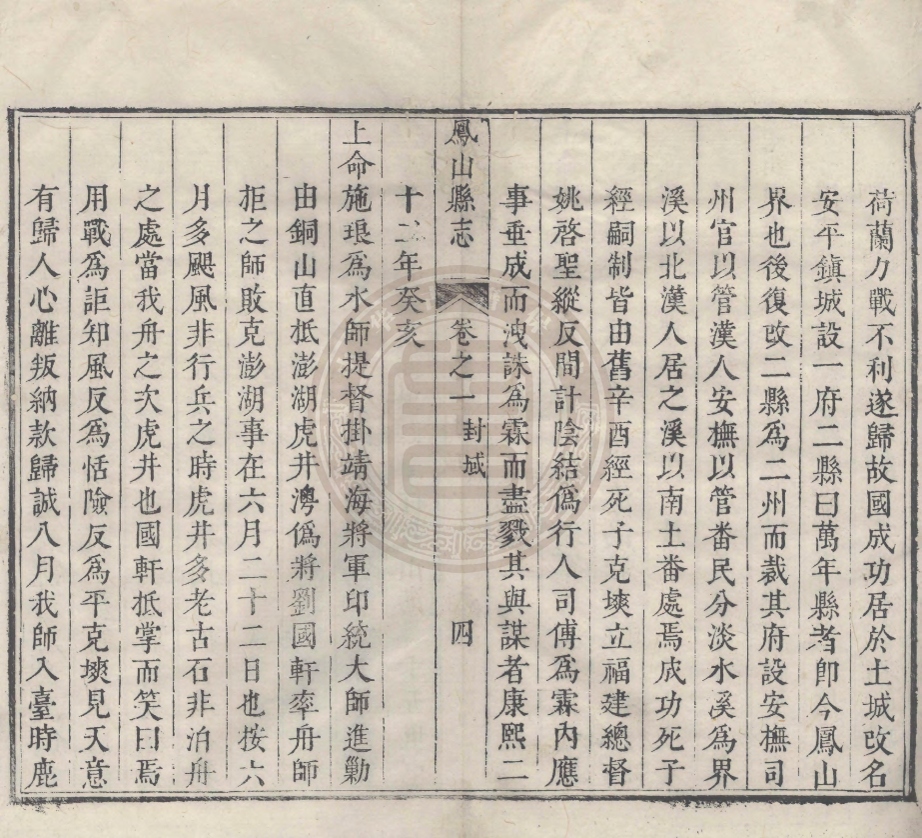 荷蘭力戰不利遂歸故國成功居於土城改名
安平鎮城設一府二縣曰萬年縣者卽今鳳山
界也後復改二縣爲二州而裁其府設安撫司
州官以管漢人安撫以管番民分淡水溪爲界
溪以北漢人居之溪以南土番處焉成功死子
經嗣制皆由舊辛酉經死子克塽立福建總督
姚啓聖縱反間計陰結僞行人司傅爲霖內應
事垂成而洩誅爲霖而盡戮其與謀者康熙二
十二年癸亥
鳳山縣志 卷之一 封域 四
上命施琅爲水師提督掛靖海將軍印統大師進勦
由銅山直抵澎湖虎井灣僞將劉國軒率舟師
拒之師敗克澎湖事在六月二十二日也按六
月多颶風非行兵之時虎井多老古石非泊舟
之處當我舟之次虎井也國軒抵掌而笑曰焉
用戰爲詎知風反爲恬險反爲平克塽見天意
有歸人心離叛納款歸誠八月我師入臺時鹿